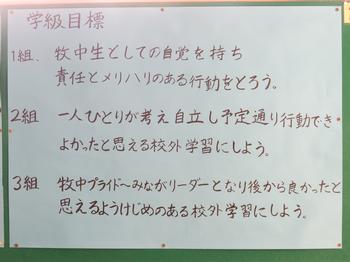 学級目標
1組、牧中生としての自覚を持ち
責任とメリハリのある行動をとろう。
2組 一人ひとりが考え自立し予定通り行動でき
よかったと思える校外学習にしよう。
3組 牧中プライド〜みんながリーダーとなり後から良かったと
思えるようけじめのある校外学習にしよう。